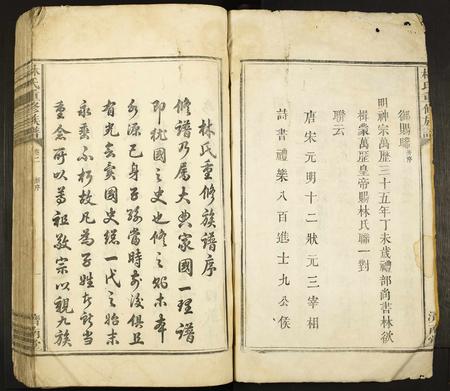 林氏重修族譜
御賜聯
明神宗萬歷三十五年丁未歲禮部尚書林欲
楫蒙萬歷皇帝賜林氏聯一對
聯云
唐宋元明十二狀元三宰相
詩書禮樂八百進士九公侯
林氏重修族譜序
修譜乃屬大典家國一理譜
即犹國之史也修之始木本
水源已身子孫當時前後俱且
有光善賓國史總一代之始末
永垂不朽故凡為子姓者當
重念所以尊祖敬宗以親九族
林氏重修族譜
卷二